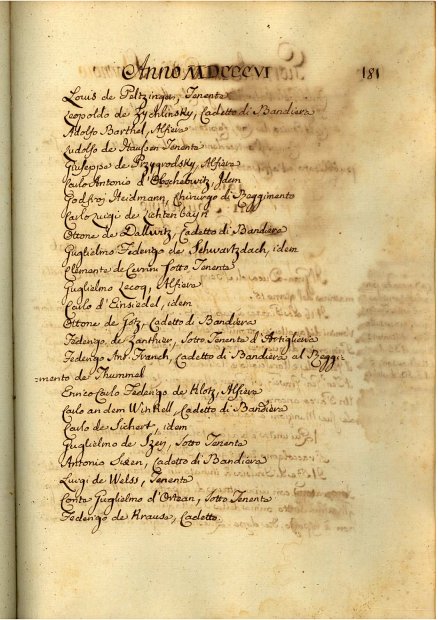 Anno MDCCCVI 181
Louis de Peltzinger, Tenente
Leopoldo de Zychlinsky, Cadetto di Bandiera
Adolfo Barthel, Alfiere
Ludolfo de Haussen Tenente
Giuseppe de Przygrodsky, Alfiere
Carlo Antonio Idem
Godfroy Heidmann, Chirurgo di Reggimento
Carlo Luigi de Lichten
Ottone de Dallwitz, Cadetto di Bandiere
Guglielmo Federigo de Schwartzdach, idem
Clemente de Cerrini Sotto Tenente
Guglielmo Lecoq, Alfiere
Carlo d'Einsiedel, idem
Ottone de Götz, Cadetto di Bandiera
Federigo, de Zanthier, Sotto Tenente d'Artiglieria
Federigo Ant. Franch, Cadetto di Bandiera, al Reggi
mento de Thummel
Enrico Carlo Federigo de Klotz, Alfiere
Carlo an dem Winkell, Cadetto di Bandiera
Carlo de Sichert, idem
Guglielmo de Sotto Tenente
Antonio Cadetto di Bandiera
Luigi de Welss, Tenente
Conte Guglielmo d'Ortzan, Sotto Tenente
Federigo de Krause, Cadetto.